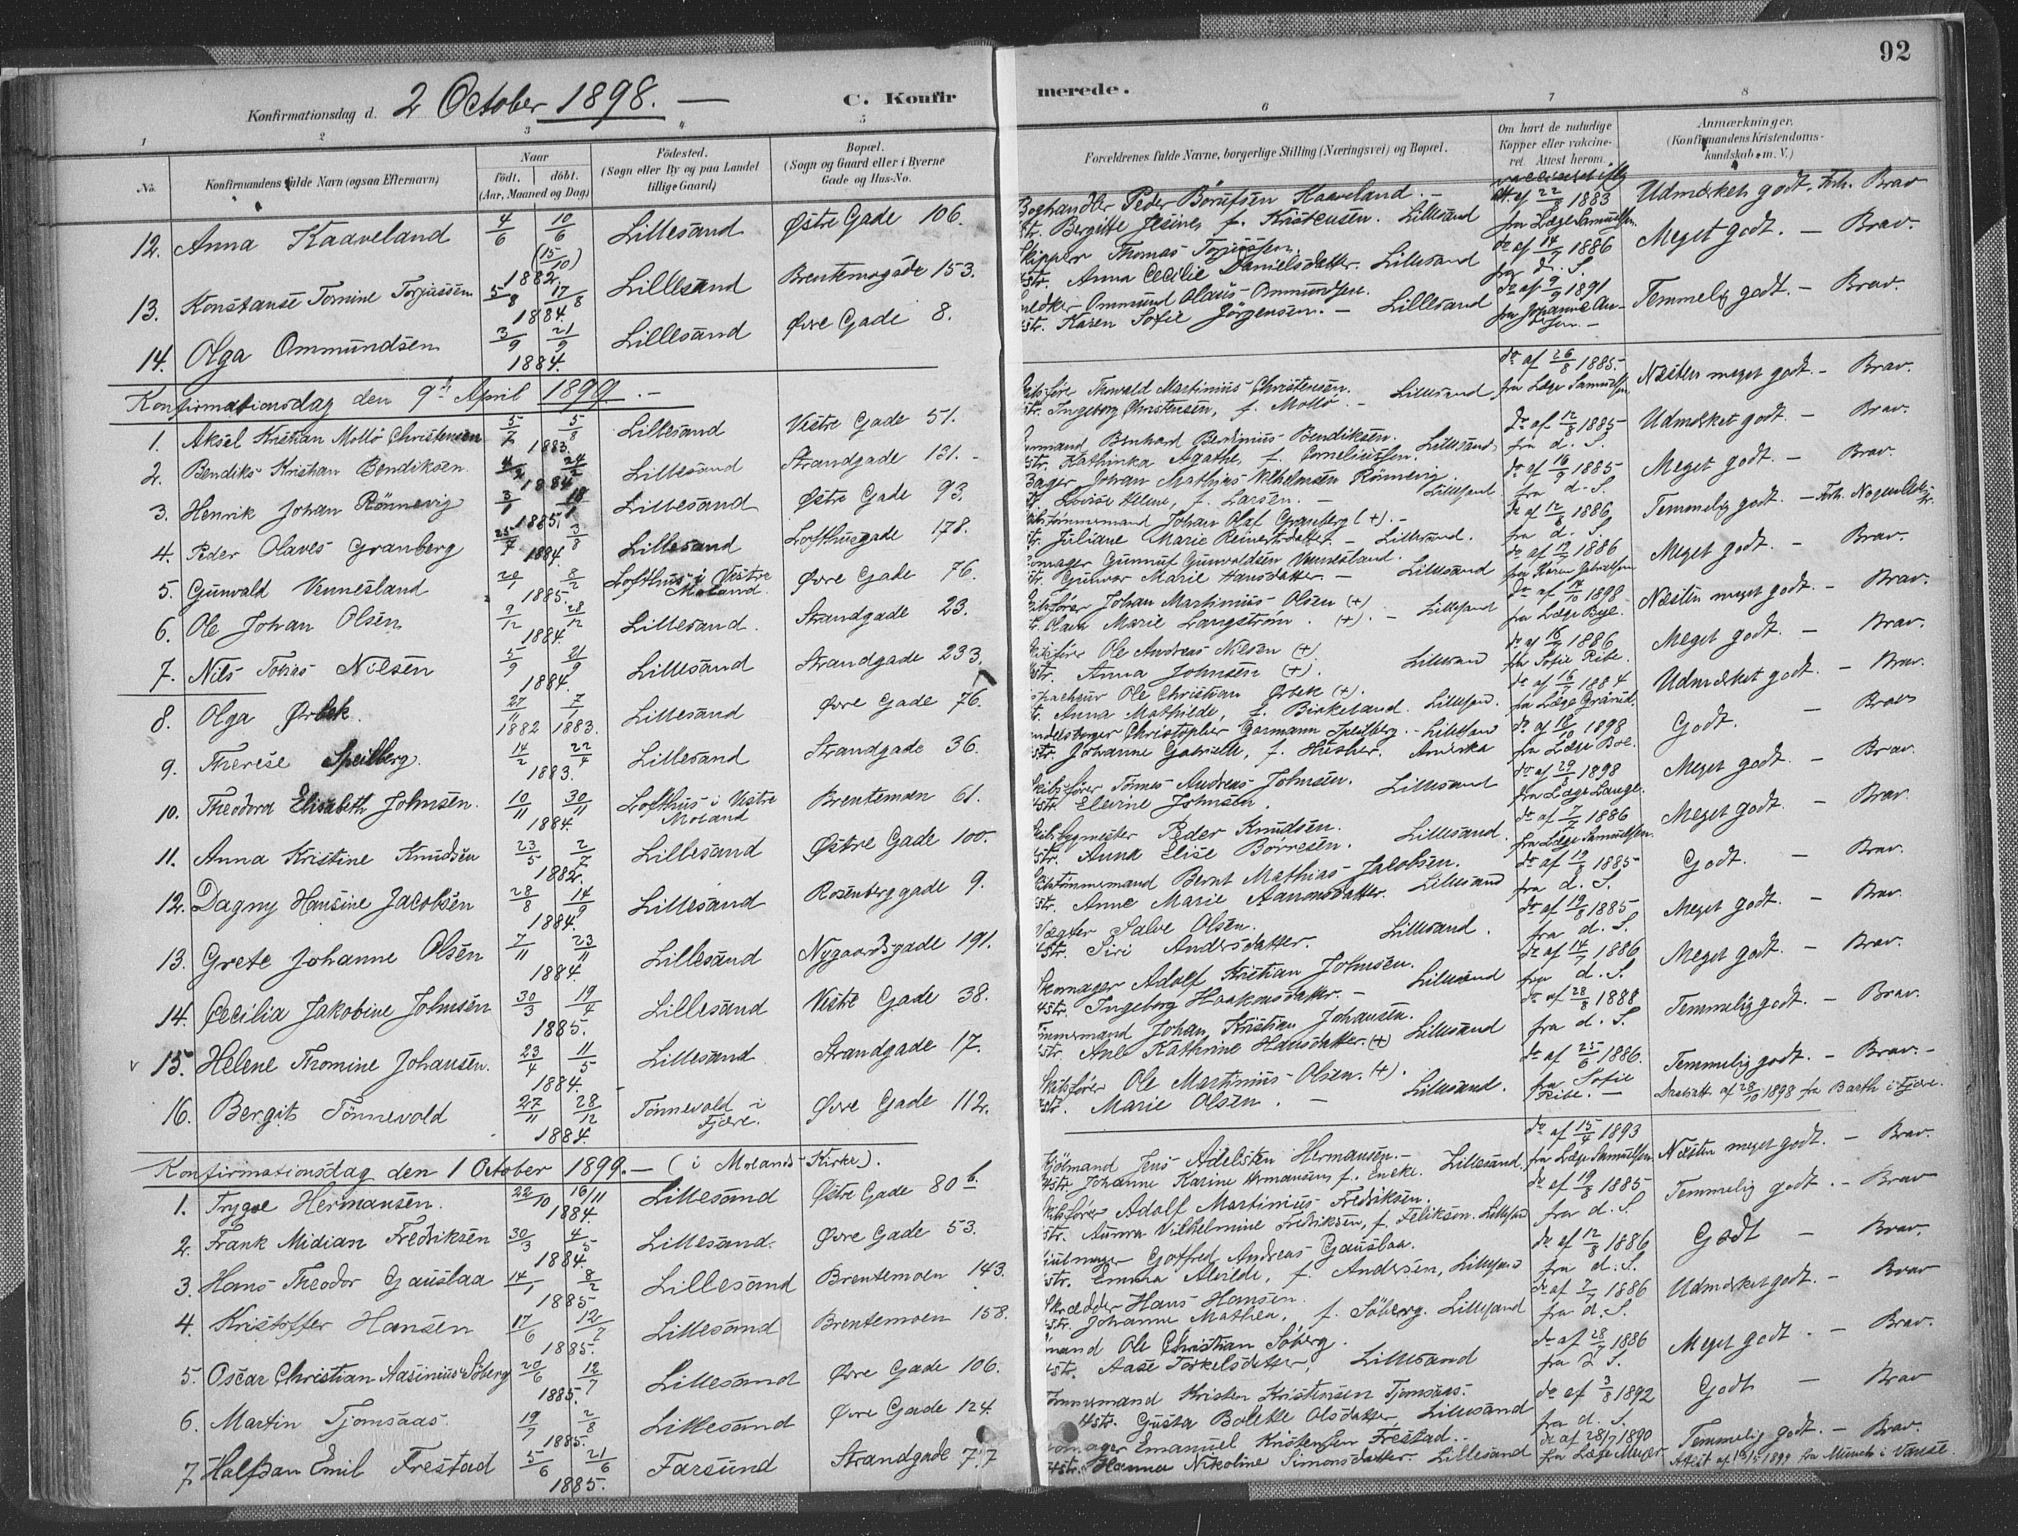 92
Konfirmationsdag d. 2 October 1898. —
C. Konfirmerede.
1 2 3 4 5 6 7 8
No.
Konfirmandens fulde Navn (ogsaa Efternavn)
Naar
födt. döbt.
(Aar, Maaned og Dag)
Födested.
(Sogn eller By og paa Landet tillige Gaard)
Bopæl.
(Sogn og Gaard eller i Byerne Gade og Hus-No.
Forældrenes fulde Navne, borgerlige Stilling (Næringsvei) og Bopæl.
Om havt de naturlige Kopper eller vaccineret. Attest herom.
Anmærkninger.
(Konfirmandens Kristendomskundskab o. m. V.)
12. Anna Kaaveland 4/6 10/6 (15/10) 1882 Lillesand Østre Gade 106. Boghandler Peder Börufsen Kaaveland. – Bergitte Jesine, f. Kristensen. Lillesand af 22/8 1883 fra Læge Samuelsen Udmærket godt. Brav
13. Konstanse Tomine Torjussen 5/8 17/8 1884. Lillesand Brentemogade 153. Skipper Thomas Torjussen Anna Cecilie Danielsdatter. Lillesand do af 14/7 1886 fra d. S. Meget godt. – Brav.
14. Olga Ommundsen 3/9 21/9 1884. Lillesand Øvre Gade 8. Snedker Ommund Olaus Ommundsen. Karen Sofie Jörgensen. – Lillesand do af 9/9 1891 fra Johanne Temmelig godt. – Brav.
Konfirmationsdag den 9de April 1899. –
1. Aksel Kristian Mollö Christensen 5/7 5/8 1883. Lillesand Vestre Gade 51. Skibsfører Thorvald Martinius Christensen. Ingeborg Christensen, f. Mollö – Lillesand do af 26/8 1885. fra Læge Samuelsen Næsten meget godt. – Brav.
2. Bendiks Kristian Bendiksen 4/2 24/2 1884 Lillesand Strandgade 121. – Bernhard Berdinius Bendiksen. Kathinka Agathe, f. Corneliussen. Lillesand. do af 12/8 1885 fra d. S. Udmærket godt. – Brav.
3. Henrik Johan Rönnevig 3/1 18/1 1885. Lillesand Østre Gade 93. Bager Johan Mathias Vilhelmsen Rönnevig Lovise Helene, f. Larsen. – Lillesand do af 16/9 1885 fra d. S. Meget godt. – Brav.
4. Peder Olaves Granberg 25/7 3/8 1884. Lillesand Lofthusgade 178. Skibstömmermand Johan Olaf Granberg (+). – Juliane Marie Reinertsdatter – Lillesand. do af 12/8 1886 fra d. S. Temmelig godt. –
5. Gunvald Vennesland 20/1 8/2 1885. Lofthus i Vestre Moland. Øvre Gade 76. Skomager Gunnuf Gunvaldsen Vennesland. Gunvor Marie Hansdatter. – Lillesand do af 19/7 1886 fra Karen Meget godt. – Brav.
6. Ole Johan Olsen 9/12 28/12 1884. Lillesand. Strandgade 23. Skibsfører Johan Martinius Olsen (+) Olava Marie Langström. (+). – Lillesand do af 14/10 1898 fra Læge Bye. Næsten meget godt – Brav.
7. Nils Tobias Nilsen 5/9 21/9 1884. Lillesand Strandgade 233. Skibsfører Ole Andreas Nilsen (+) Anna Johnsen (+). Lillesand do af 16/7 1886 fra Sofie Ribe. Meget godt – Brav.
8. Olga Ørbek. 27/11 1882 7/1 1883. Lillesand Øvre Gade 76. Ole Christian Ørbek (+). Anna Mathilde, f. Birkeland. Lillesand. do af 16/7 1884 fra Læge Udmærket godt. – Brav.
9. Therese Speilberg. 14/2 22/4 1883. Lillesand Strandgade 36. Christopher Germann Speilberg. – Lillesand Johanne Gabrielle, f. Husher. Amerika do af 18/10 1898 fra Læge Boe. Godt. – Brav
10. Theodora Elisabeth Johnsen. 10/11 30/11 1884. Lofthus i Vestre Moland Brentemoen 61. Skibsfører Tomas Andreas Johnsen. Elevine Johnsen. Lillesand do af 29/8 1898 fra Læge Lange. Meget godt – Brav.
11. Anna Kristine Knudsen 23/5 2/7 1882. Lillesand Østre Gade 100. Skibsbygmester Peder Knudsen. Anna Elise Börresen. Lillesand. do af 7/7 1886 fra Læge Samuelsen. Meget godt. – Brav.
12. Dagny Hansine Jacobsen 28/8 14/9 1884. Lillesand Rosenberggade 9. Skibstömmermand Bernt Mathias Jacobsen. Anne Marie Aanonsdatter. Lillesand do af 19/8 1885 fra d. S. Godt. – Brav.
13. Grete Johanne Olsen 7/11 23/11 1884. Lillesand Nygaardsgade 191. Vægter Salve Olsen. Siri Andersdatter. Lillesand. do af 19/8 1885 fra d. S. Meget godt. – Brav.
14. Cecilia Jakobine Johnsen 30/3 19/4 1885. Lillesand Vestre Gade 38. Skomager Adolf Kristian Johnsen. Ingeborg Haakonsdatter. – Lillesand do af 14/7 1886 fra d. S. Meget godt. – Brav.
v 15. Helene Thomine Johansen. 23/4 11/5 1884. Lillesand Strandgade 17. Tömmermand Johan Kristian Johansen. Ane Kathrine Hansdatter. (+) Lillesand do af 28/8 1888 fra d. S. Temmelig godt. – Brav.
16. Bergit Tönnevold 27/11 28/12 1884. Tönnevold i Fjære. Øvre Gade 112. Skibsfører Ole Martinius Olsen. (+). Marie Olsen. – Lillesand. do af 25/6 1886. fra Sofie Ribe. – Temmelig godt. – Brav. – af 28/10 1898 fra Barth i Fjære.
Konfirmationsdag den 1 October 1899. – (i Molands Kirke).
1. Trygve Hermansen. 22/10 16/11 1884. Lillesand Østre Gade 80 b. Jens Adelsten Hermansen. – Johanne Karine Hermansen, f. Eneke. Lillesand. do af 15/4 1893 fra Læge Samuelsen. Næsten meget godt. – Brav.
2. Frank Midian Fredriksen 30/3 4/5 1884. Lillesand. Øvre Gade 53. Skibsfører Adolf Martinius Fredriksen. Aurora Vilhelmine Fredriksen, f. Feliksen. Lillesand do af 19/8 1885 fra d. S. Temmelig godt. – Brav
3. Hans Theodor Gauslaa 14/1 8/2 1885 Lillesand Brentemoen 143. Gotfred Andreas Gauslaa. Emma Alvilde, f. Andersen, Lillesand do af 12/8 1886 fra d. S. Godt – Brav.
4. Kristoffer Hansen 17/6 12/7 1885. Lillesand Brentemoen 158. Skrædder Hans Hansen. Johanne Mathea, f. Söberg. Lillesand do af 7/7 1886 fra d. S. Udmærket godt. – Brav
5. Oscar Christian Aasinius Söberg 20/6 12/7 1885. Lillesand Øvre Gade 106. Ole Christian Söberg. Aase Torkelsdatter, Lillesand do af 28/7 1886 fra d. S. Meget godt. – Brav.
6. Martin Tjomsaas. 19/7 2/8 1885. Lillesand Øvre Gade 124. Tömmermand Kristen Kristensen Tjomsaas. Gusta Bolette Olsdatter, Lillesand do af 3/8 1892 fra d. S. Godt – Brav
7. Halfdan Emil Frestad 5/6 21/6 1885. Farsund Strandgade 77 Skomager Emanuel Kristensen Frestad. Hanna Nikoline Simonsdatter. Lillesand do af 28/7 1890 fra Læge Meyer Temmelig godt. – Brav. Attest af 1899 fra Münch i Vanse.